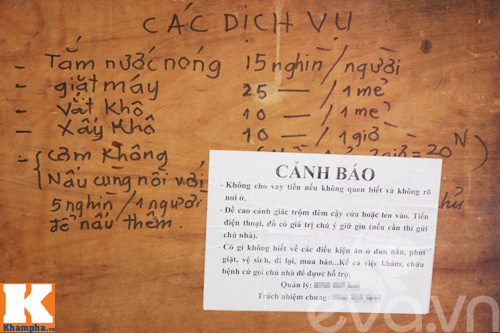 CÁC DỊCH VỤ
- Tắm nước nóng 15 nghìn/người
- giặt máy 25 — /1 mẻ
- Vắt Khô 10 — /1 mẻ
- Xấy Khô 10 — /1 giờ
= 20N
- {Cơm Không
Nấu cùng nồi với
5 nghìn/1 người
để nấu thêm.
CẢNH BÁO
- Không cho vay tiền nếu không quen biết và không rõ
nơi ở.
- Đề cao cảnh giác trộm đêm cậy cửa hoặc len vào. Tiền
điện thoại, đồ có giá trị chú ý giữ gìn (nếu cần thì gửi
chủ nhà).
- Có gì không biết về các điều kiện ăn ở đun nấu, phơi
giặt, vệ sinh, đi lại, mua bán...Kể cả việc khám, chữa
bệnh cứ gọi chủ nhà để được hỗ trợ.
Quản lý:
Trách nhiệm chung:
K
Khampha.vn
eva.vn